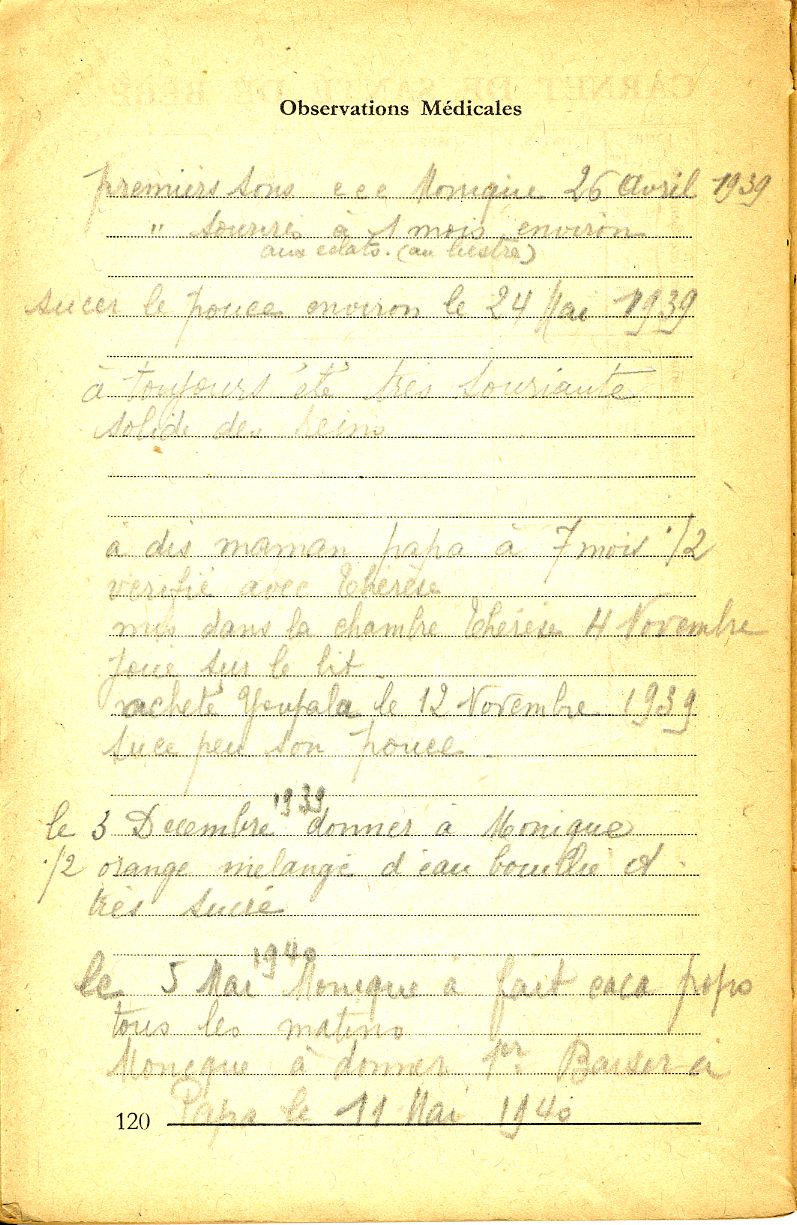 Observations Médicales
premiers sons e e e Monique 26 Avril 1939
" sourire à 1 mois environ
aux éclats. (au
sucer le pouce environ le 24 Mai 1939
à toujours été très souriante
solide des reins
à dis maman papa à 7 mois 1/2
vérifié avec Thérèse
mis dans la chambre Thérèse 4 Novembre
joue sur le lit
racheté Youpala le 12 Novembre 1939
suce peu son pouce.
le 3 Decembre 1939 donner à Monique
1/2 orange mélangé d'eau bouillie et
très sucré
le 5 Mai 1940 Monique à fait caca popo
tous les matins
Monique à donner 1er Baiser à
Papa le 11 Mai 1940
120